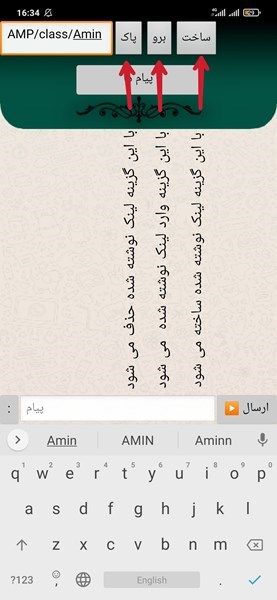 16:34
AMP/class/Amin
پاک
برو
ساخت
پیام
با این گزینه لینک نوشته شده حذف می شود
با این گزینه وارد لینک نوشته شده می شود
با این گزینه لینک نوشته شده ساخته می شود
: پیام ارسال
Amin AMIN Aminn
q w e r t y u i o p
1 2 3 4 5 6 7 8 9 0
a s d f g h j k l
z x c v b n m
?123 , English .